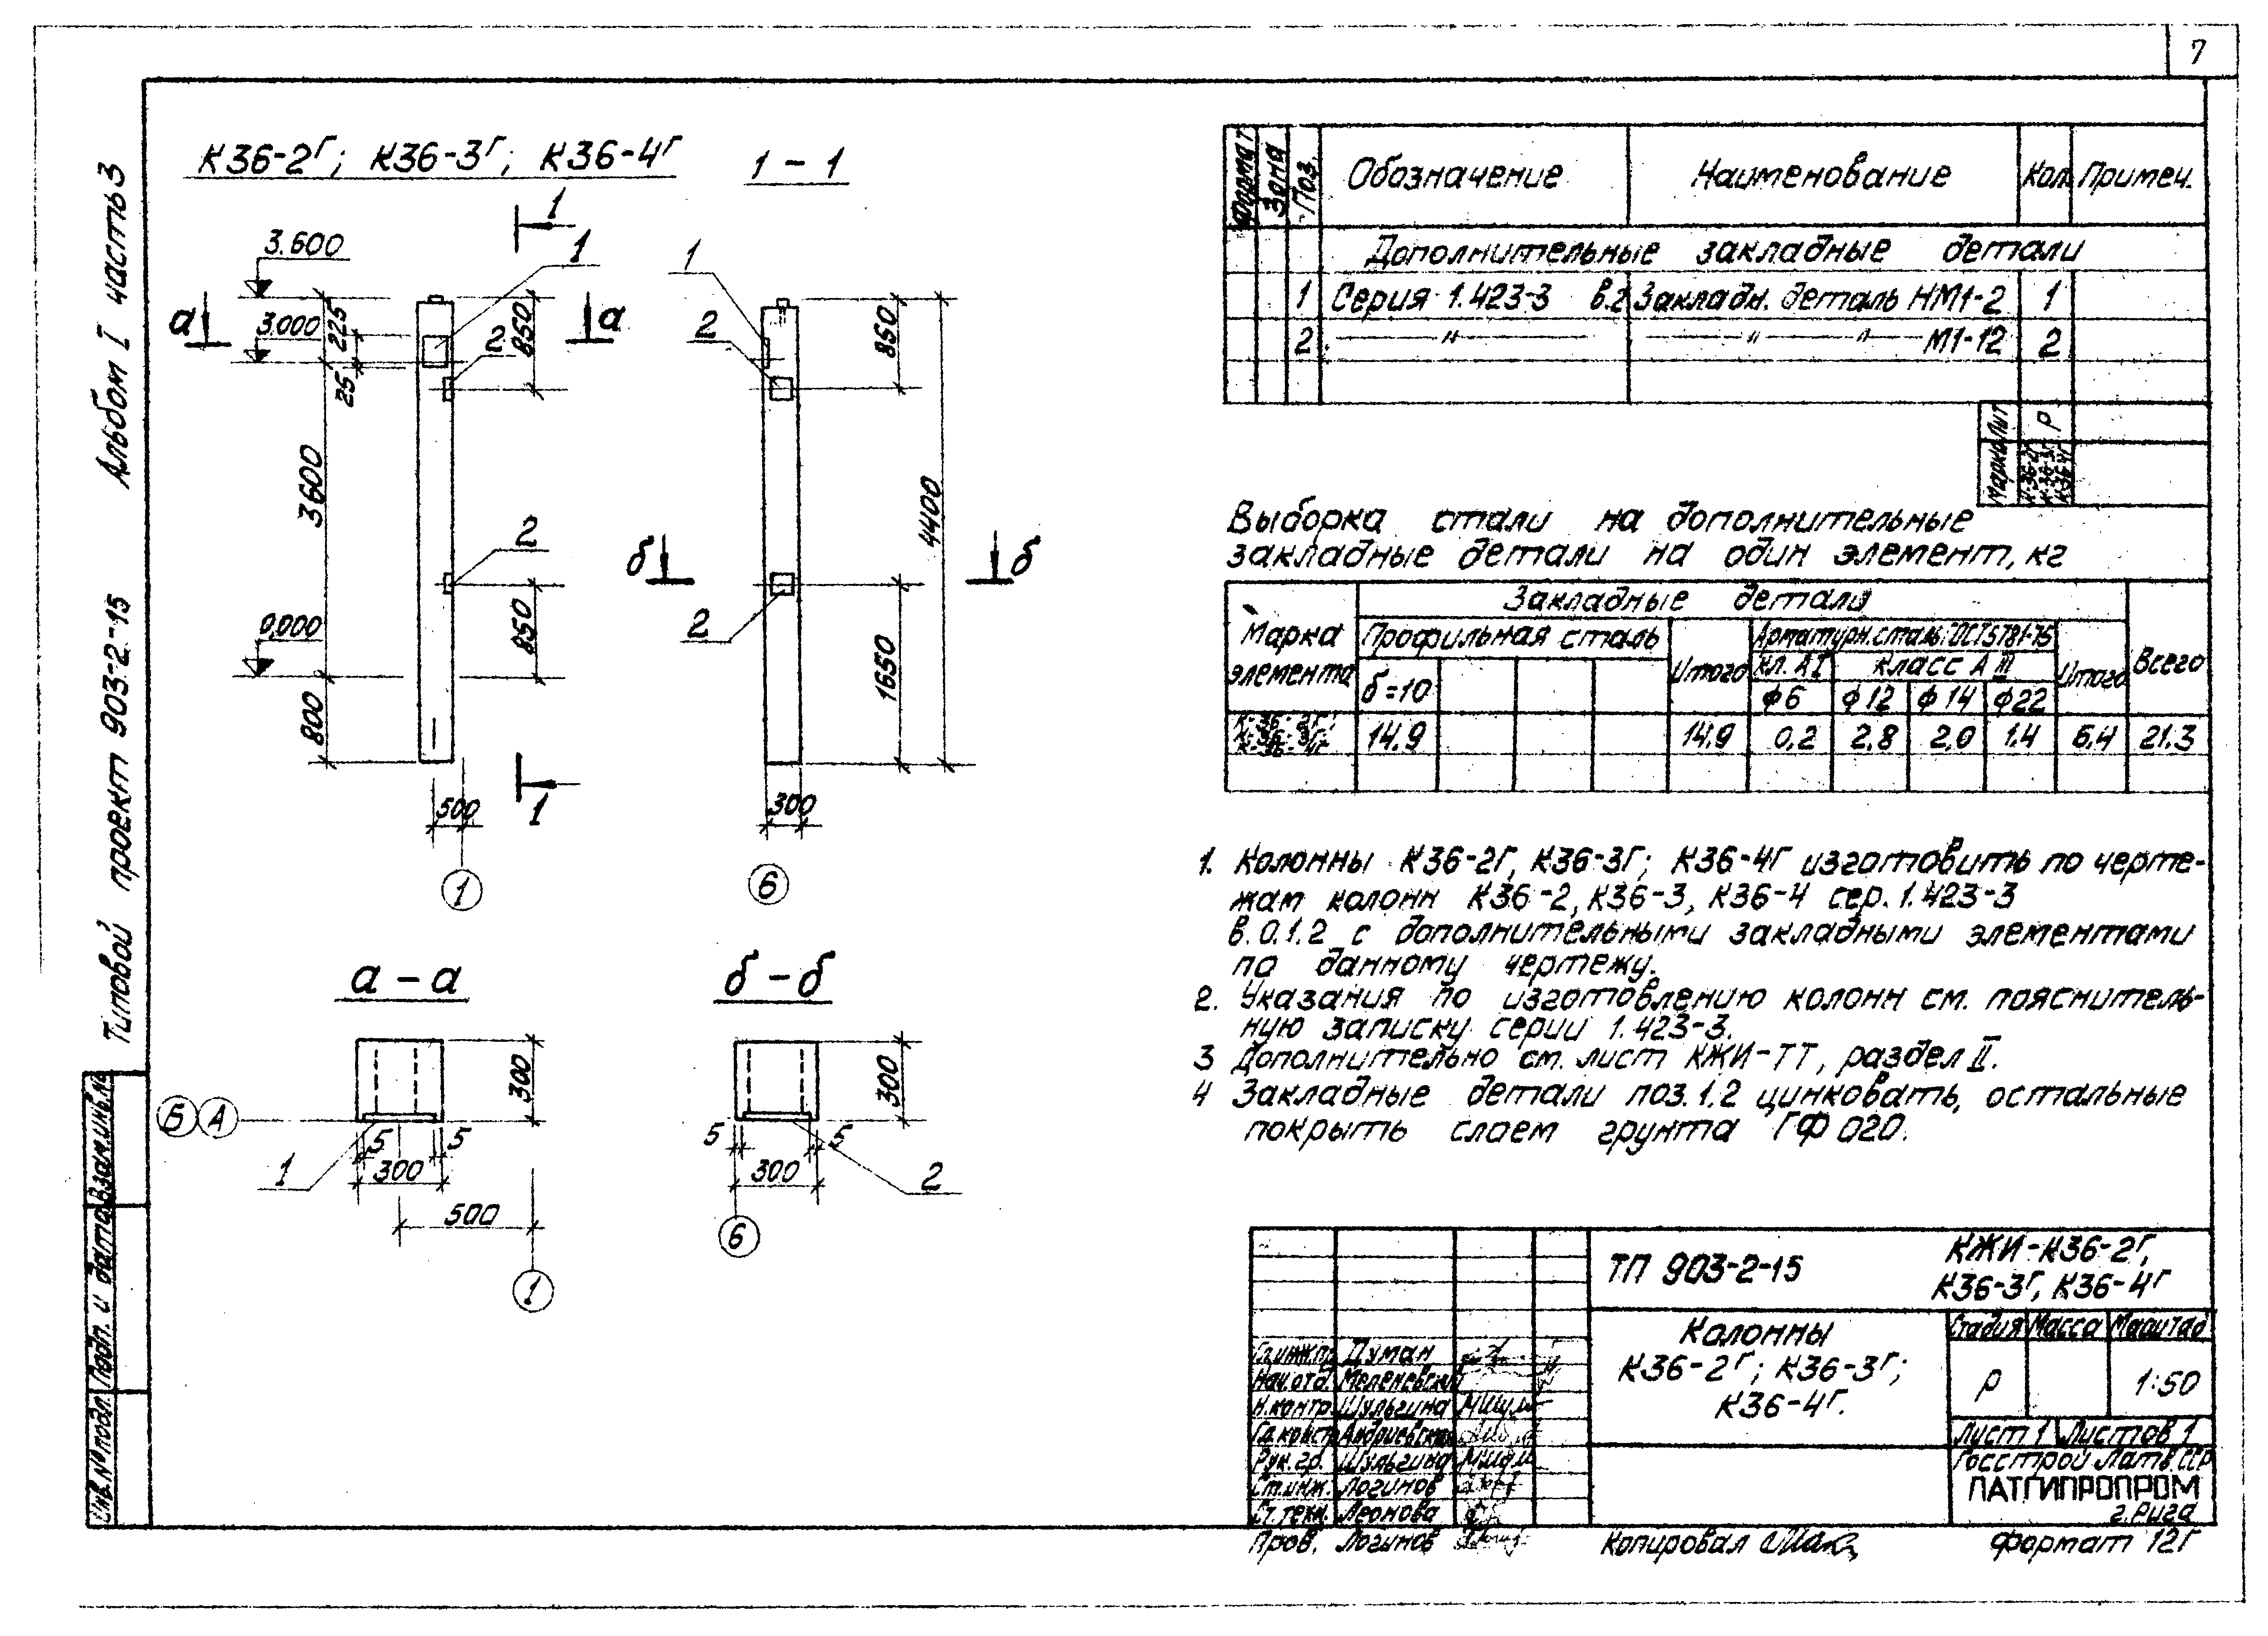 7
К36-2Г; К36-3Г; К36-4Г
1 - 1
1
3.600
1
1
а
3.000
225
25
2
850
а
2
850
3600
2
4400
б
б
0.000
850
2
1650
800
1
500
300
1
6
а - а
б - б
300
300
Б
А
5
5
5
5
1
300
300
2
500
6
1
Альбом I часть 3
Типовой проект 903-2-15
Взам.инв.№
Подп. и дата
Инв.№ подл.
Формат
Зона
Поз.
Обозначение
Наименование
Кол.
Примеч.
Дополнительные закладные детали
1 Серия 1.423-3 в.2 Закладн. деталь НМ1-2 1
2 —"— —"—"— М1-12 2
Лит Р
Марка К-36-2Г К-36-3Г К-36-4Г
Выборка стали на дополнительные
закладные детали на один элемент, кг
Марка элемента
Закладные детали
Всего
Профильная сталь
Итого
Арматурн. сталь ГОСТ 5781-75
Итого
кл. АI
Класс А III
б=10
ф6 ф12 ф14 ф22
К-36-2Г; К-36-3Г; К-36-4Г 14.9 14.9 0,2 2,8 2,0 1.4 6,4 21.3
1. Колонны К36-2Г, К36-3Г; К36-4Г изготовить по черте-
жам колонн К36-2, К36-3, К36-4 сер. 1.423-3
в.0.1.2 с дополнительными закладными элементами
по данному чертежу.
2. Указания по изготовлению колонн см. пояснитель-
ную записку серии 1.423-3.
3 Дополнительно см. лист КЖИ-ТТ, раздел II.
4 Закладные детали поз.1.2 цинковать, остальные
покрыть слоем грунта ГФ 020.
ТП 903-2-15
КЖИ-К36-2Г,
К36-3Г, К36-4Г
Колонны
К36-2Г; К36-3Г;
К36-4Г.
Стадия Масса Масштаб
Р 1:50
Лист 1 Листов 1
Госстрой Латв ССР
ЛАТГИПРОПРОМ
г.Рига
Гл.инж.пр. Думан
Нач.отд. Меленевский
Н.контр. Шульгина
Гл.констр. Андриевская
Рук.гр. Шульгина
Ст.инж. Логинов
Ст.техн. Леонова
Пров. Логинов
Копировал
Формат 12Г